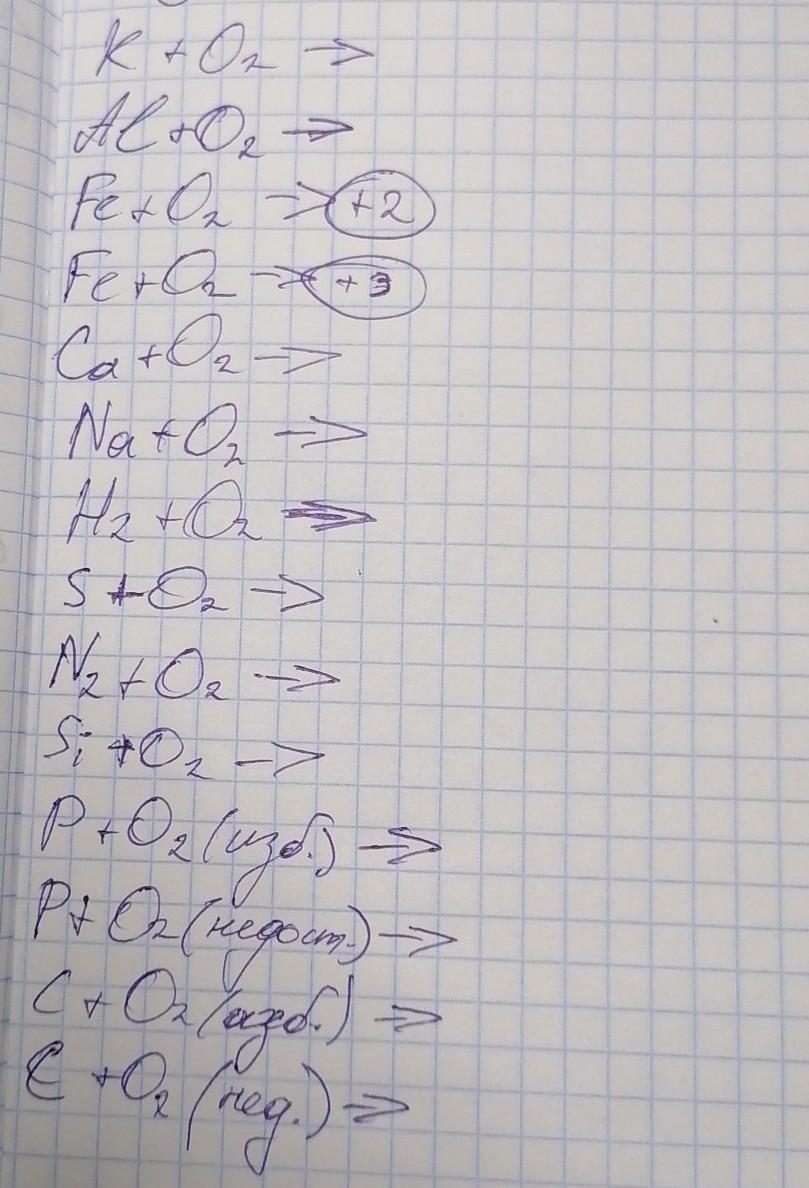 K + O₂ →
Al + O₂ →
Fe + O₂ → +2
Fe + O₂ → +3
Ca + O₂ →
Na + O₂ →
H₂ + O₂ →
S + O₂ →
N₂ + O₂ →
Si + O₂ →
P + O₂ (изб.) →
P + O₂ (недост.) →
C + O₂ (изб.) →
C + O₂ (нед.) →